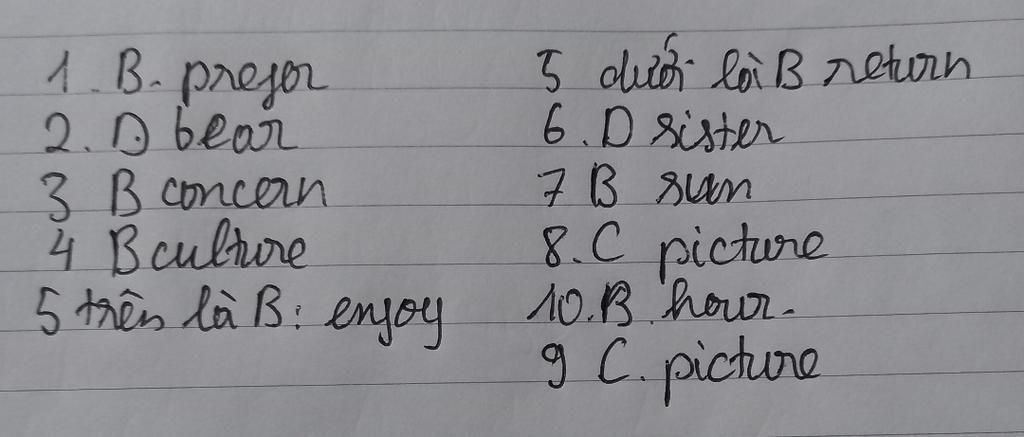 1. B. prefer
2. D bear
3 B concern
4 B culture
5 trên là B: enjoy
5 dưới là B return
6. D sister
7 B sun
8. C picture
10. B. hour.
9 C. picture